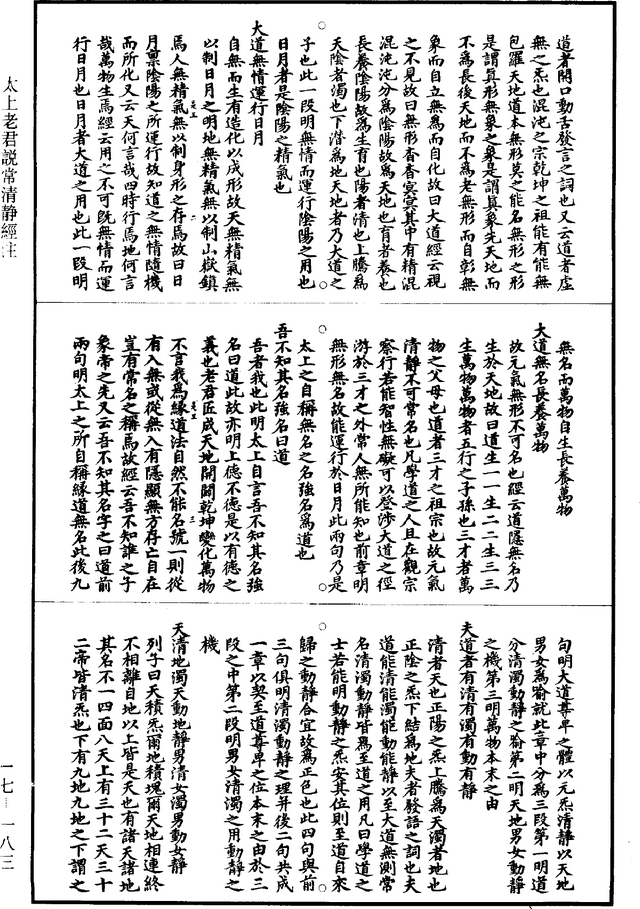 太上老君說常清靜經注
道者開口動舌發言之詞也又云道者虛
無之炁也混沌之宗乾坤之祖能有能無
包羅天地道本無形莫之能名無形之形
是謂真形無象之象是謂真象先天地而
不為長後天地而不為老無形而自彰無
象而自立無為而自化故曰大道經云視
之不見故曰無形杳杳冥冥其中有精混
混沌沌分為陰陽故為天地也育者養也
長養陰陽故為生育也陽者清也上騰為
天陰者濁也下潛為地天地者乃大道之
子也此一段明無情而運行陰陽之用也
日月者是陰陽之精氣也
大道無情運行日月
自無而生有造化以成形故天無精氣無
以制日月之明地無精氣無以制山嶽鎮
焉人無精氣無以制身形之存焉故曰日
月禀陰陽之所運行故知道之無情隨機
而所化又云天何言哉四時行焉地何言
哉萬物生焉經云用之不可既無情而運
行日月也日月者大道之用也此一段明
無名而萬物自生長養萬物
大道無名長養萬物
故元氣無形不可名也經云道隱無名乃
生於天地故曰道生一一生二二生三三
生萬物萬物者五行之子孫也三才者萬
物之父母也道者三才之祖宗也故元氣
清靜不可常名也凡學道之人且在觀宗
察行若能智性無礙可以登涉大道之徑
游於三才之外常人無所能知也前章明
無形無名故能運行於日月此兩句乃是
太上之自稱無名之名強名為道也
吾不知其名強名曰道
吾者我也此明太上自言吾不知其名強
名曰道此故亦明上德不德是以有德之
義也老君匠成天地開闢乾坤變化萬物
不言我為緣道法自然不能名號一則從
有入無或從無入有隱顯無方存亡自在
豈有常名之稱焉故經云吾不知誰之子
象帝之先又云吾不知其名字之曰道前
兩句明太上之所自稱緣道無名此後九
句明大道尊卑之體以元炁清靜以天地
男女為喻就此章中分為三段第一明道
分清濁動靜之喻第二明天地男女動靜
之機第三明萬物本末之由
夫道者有清有濁有動有靜
清者天也正陽之炁上騰為天濁者地也
正陰之炁下結為地夫者發語之詞也夫
道能清能濁能動能靜以至大道無測常
名清濁動靜皆為至道之用凡曰學道之
士若能明動靜之炁安其位則至道自來
歸之動靜合宜故為正色也此四句與前
三句俱明清濁動靜之理并後二句共成
一章以契至道尊卑之位本末之由於三
段之中第二段明男女清濁之用動靜之
機
天清地濁天動地靜男清女濁男動女靜
列子曰天積炁爾地積塊爾天地相連終
不相離自地以上皆是天也有諸天諸地
其名不一四面八天上有三十二天三十
二帝皆清炁也下有九地九地之下謂之
一七─一八三